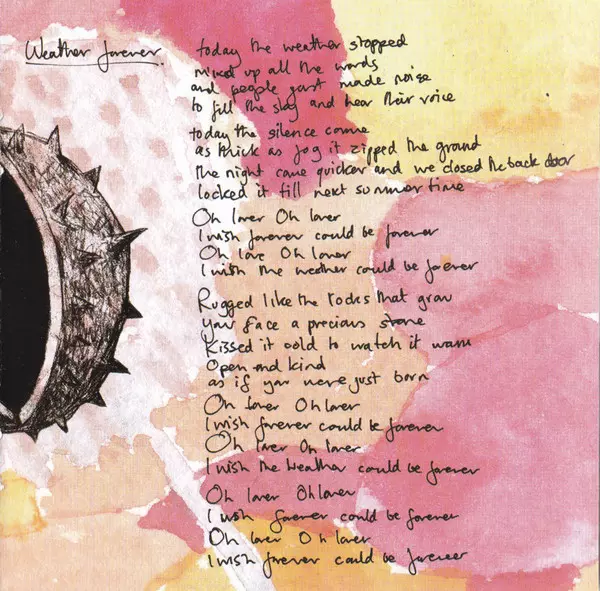 Weather forever.
today the weather stopped
mixed up all the words
and people just made noise
to fill the sky and hear their voice
today the silence came
as thick as fog it zipped the ground
the night came quicker and we closed the back door
locked it till next summer time
Oh lover Oh lover
I wish forever could be forever
Oh love Oh lover
I wish the weather could be forever
Rugged like the rocks that grow
your face a precious stone
Kissed it cold to watch it warm
Open and kind
as if you were just born
Oh lover Oh lover
I wish forever could be forever
Oh lover Oh lover
I wish the weather could be forever
Oh lover Oh lover
I wish forever could be forever
Oh lover Oh lover
I wish forever could be forever